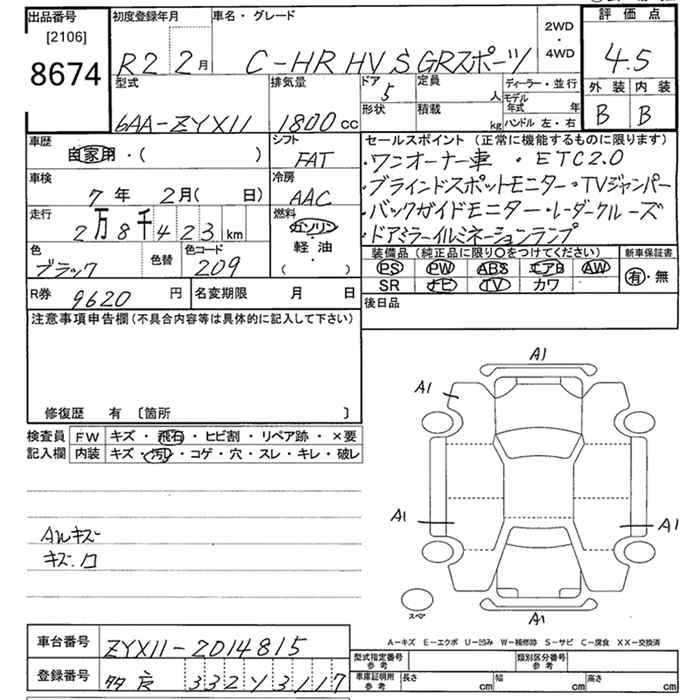 出品番号 [2106] 8674
初度登録年月 R2 2月
車名・グレード C-HR HV S GRスポーツ
2WD・4WD
評価点 4.5
型式 6AA-ZYX11
排気量 1800cc
ドア 5
形状
定員 人
積載 kg
ディーラー・並行
モデル年式 年
ハンドル 左・右
外装 B
内装 B
車歴 自家用・( )
シフト FAT
車検 7年 2月( 日)
冷房 AAC
走行 2万8千423km
燃料 ガソリン 軽油 ( )
色 ブラック
色替
色コード 209
R券 9620円
名変期限 月 日
セールスポイント(正常に機能するものに限ります)
・ワンオーナー車 ・ETC2.0
・ブラインドスポットモニター・TVジャンパー
・バックガイドモニター・レーダークルーズ
・ドアミラーイルミネーションランプ
装備品(純正品に限り○をつけてください)
新車保証書
PS PW ABS エアB AW
SR ナビ TV カワ
有・無
後日品
注意事項申告欄(不具合内容等は具体的に記入して下さい)
修復歴 有 〔箇所 〕
検査員記入欄
FW キズ・飛石・ヒビ割・リペア跡・×要
内装 キズ・汚レ・コゲ・穴・スレ・キレ・破レ
AWキズ
キズ.ワ
A1
A1
A1
A1
A1
スペア
A-キズ E-エクボ U-凹み W-補修跡 S-サビ C-腐食 XX-交換済
車台番号 ZYX11-2014815
登録番号 332 Y3117
型式指定番号 参考
類別区分番号 参考
車庫証明用 参考 長さ cm 幅 cm 高さ cm